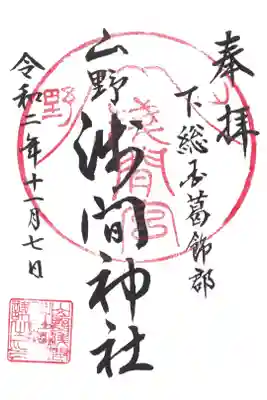 奉拝
下総国葛飾郡
山野浅間神社
令和二年十一月七日